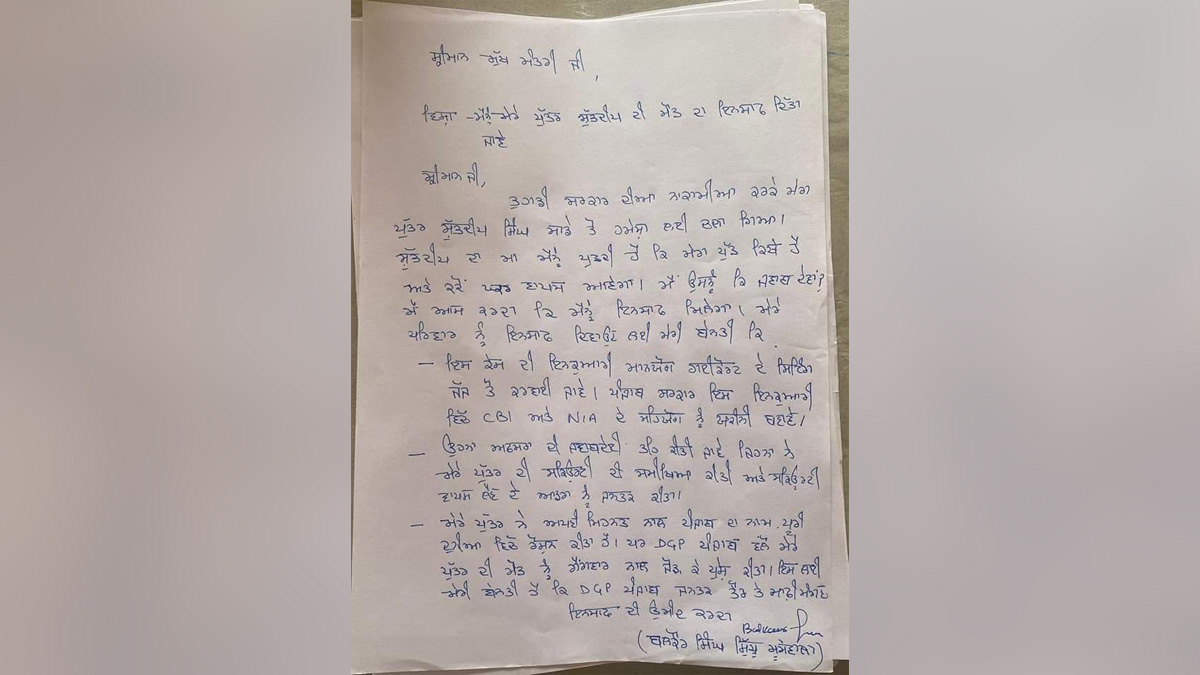 ਸ਼੍ਰੀਮਾਨ ਮੁੱਖ ਮੰਤਰੀ ਜੀ,
ਵਿਸ਼ਾ - ਮੈਨੂੰ ਮੇਰੇ ਪੁੱਤਰ ਸ਼ੁੱਭਦੀਪ ਦੀ ਮੌਤ ਦਾ ਇਨਸਾਫ ਦਿੱਤਾ
ਜਾਵੇ
ਸ਼੍ਰੀਮਾਨ ਜੀ,
ਤੁਹਾਡੀ ਸਰਕਾਰ ਦੀਆ ਨਾਕਾਮੀਆ ਕਰਕੇ ਮੇਰਾ
ਪੁੱਤਰ ਸ਼ੁੱਭਦੀਪ ਸਿੰਘ ਸਾਡੇ ਤੋਂ ਹਮੇਸ਼ਾ ਲਈ ਚਲਾ ਗਿਆ।
ਸ਼ੁੱਭਦੀਪ ਦਾ ਮਾ ਮੈਨੂੰ ਪੁਛਦੀ ਹੈ ਕਿ ਮੇਰਾ ਪੁੱਤ ਕਿਥੇ ਹੈ
ਅਤੇ ਕਦੋਂ ਵਾਪਸ ਆਵੇਗਾ। ਮੈਂ ਉਸਨੂੰ ਕਿ ਜਵਾਬ ਦੇਵਾਂ?
ਮੈਂ ਆਸ ਕਰਦਾ ਕਿ ਮੈਨੂੰ ਇਨਸਾਫ ਮਿਲੇਗਾ। ਮੇਰੇ
ਪਰਿਵਾਰ ਨੂੰ ਇਨਸਾਫ ਦਿਵਾਉਣ ਲਈ ਮੇਰੀ ਬੇਨਤੀ ਕਿ
- ਇਸ ਕੇਸ ਦੀ ਇਨਕੁਆਰੀ ਮਾਨਯੋਗ ਹਾਈਕੋਰਟ ਦੇ ਸਿਟਿੰਗ
ਜੱਜ ਤੋਂ ਕਰਵਾਈ ਜਾਵੇ। ਪੰਜਾਬ ਸਰਕਾਰ ਇਸ ਇਨਕੁਆਰੀ
ਵਿਚ CBI ਅਤੇ NIA ਦੇ ਸਹਿਯੋਗ ਨੂੰ ਯਕੀਨੀ ਬਣਾਵੇ।
- ਉਹਨਾ ਅਫਸਰਾ ਦੀ ਜਵਾਬਦੇਹੀ ਤਹਿ ਕੀਤੀ ਜਾਵੇ ਜਿਹਨਾ ਨੇ
ਮੇਰੇ ਪੁੱਤਰ ਦੀ ਸਕਿਉਰਟੀ ਦੀ ਸਮੀਖਿਆ ਕੀਤੀ ਅਤੇ ਸਕਿਉਰਟੀ
ਵਾਪਸ ਲੈਣ ਦੇ ਆਡਰਾ ਨੂੰ ਜਨਤਕ ਕੀਤਾ।
- ਮੇਰੇ ਪੁੱਤਰ ਨੇ ਅਪਣੀ ਮਿਹਨਤ ਨਾਲ ਪੰਜਾਬ ਦਾ ਨਾਮ ਪੂਰੀ
ਦੁਨੀਆ ਵਿਚ ਰੌਸ਼ਨ ਕੀਤਾ ਹੈ। ਪਰ DGP ਪੰਜਾਬ ਵਲੋਂ ਮੇਰੇ
ਪੁੱਤਰ ਦੀ ਮੌਤ ਨੂੰ ਗੈਂਗਵਾਰ ਨਾਲ ਜੋੜ ਕੇ ਪੇਸ਼ ਕੀਤਾ। ਇਸ ਲਈ
ਮੇਰੀ ਬੇਨਤੀ ਹੈ ਕਿ DGP ਪੰਜਾਬ ਜਨਤਕ ਤੌਰ ਤੇ ਮਾਫੀ ਮੰਗਣ
ਇਨਸਾਫ ਦੀ ਉਮੀਦ ਕਰਦਾ
Balkaur
(ਬਲਕੌਰ ਸਿੰਘ ਸਿੱਧੂ ਮੂਸੇਵਾਲਾ)